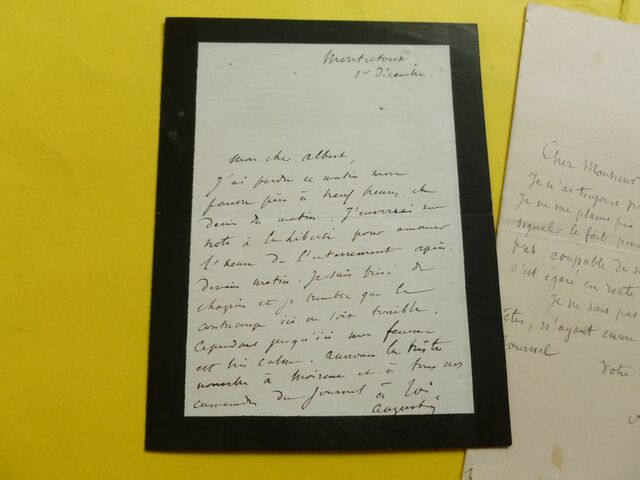 Montretout
1er Décembre.
Mon cher Albert,
J'ai perdu ce matin mon
pauvre père à neuf heures et
demie du matin. J'enverrai une
note à la Liberté pour annoncer
l'heure de l'enterrement après-
demain matin. Je suis brisé de
chagrin et je tremble que le
contrecoup ici ne soit terrible.
Cependant jusqu'ici ma femme
est très calme. Annonce la triste
nouvelle à Moireau et à tous nos
camarades du Journal à toi
Cher Monsieur
Je n'ai toujours
Je ne me plains pas
signaler le fait pour
pas coupable de
s'est égaré en route
Je ne sais pas
êtes, n'ayant
Journal
Votre